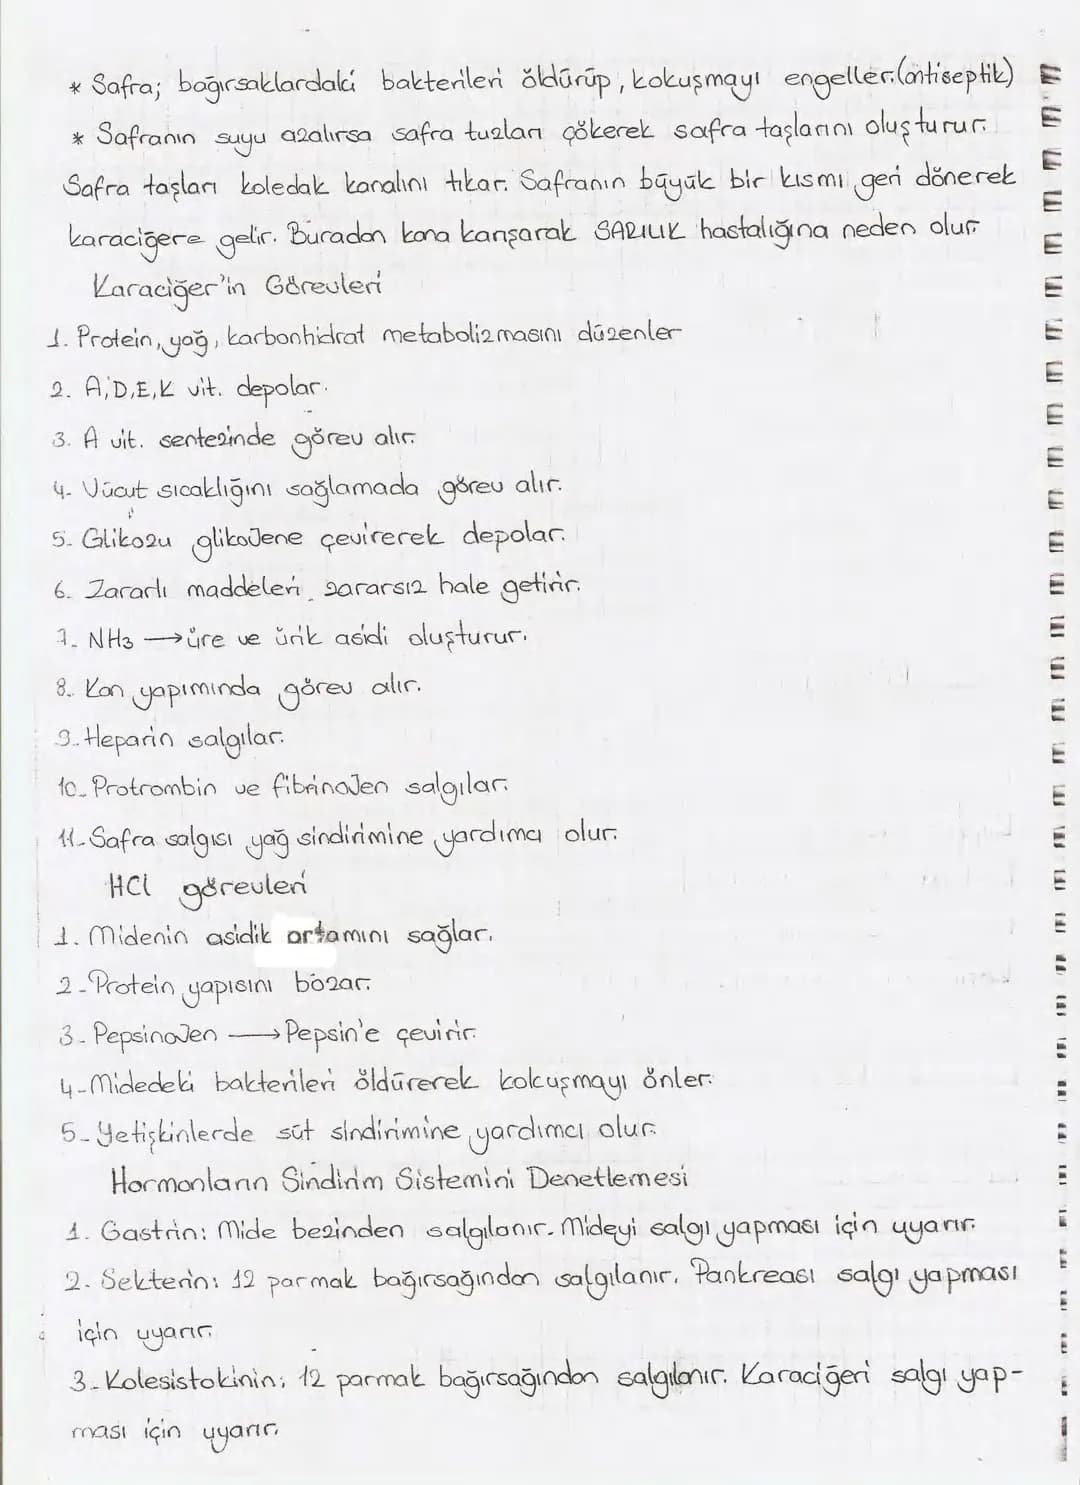 * Safra; bağırsaklardaki bakterileri öldürüp, kokuşmayı engeller.(antiseptik)
* Safranın suyu azalırsa safra tuzları çökerek safra taşlarını oluşturur.
Safra taşları koledak kanalını tıkar. Safranın büyük bir kısmı geri dönerek
karaciğere gelir. Buradan kana karışarak SARILIK hastalığına neden olur.
Karaciğer'in Görevleri
1. Protein, yağ, karbonhidrat metabolizmasını düzenler
2. A,D,E,K vit. depolar.
3. A vit. sentezinde görev alır.
4- Vücut sıcaklığını sağlamada görev alır.
5- Glikozu glikojene çevirerek depolar.
6. Zararlı maddeleri zararsız hale getirir.
7- NH3 → üre ve ürik asidi oluşturur.
8. Kan yapımında görev alır.
9. Heparin salgılar.
10- Protrombin ve fibrinojen salgılar.
11- Safra salgısı yağ sindirimine yardımcı olur.
HCl görevleri
1. Midenin asidik ortamını sağlar.
2- Protein yapısını bozar.
3- Pepsinojen → Pepsin'e çevirir.
4- Midedeki bakterileri öldürerek kokuşmayı önler.
5- Yetişkinlerde süt sindirimine yardımcı olur.
Hormonların Sindirim Sistemini Denetlemesi
1. Gastrin: Mide bezinden salgılanır. Mideyi salgı yapması için uyarır.
2. Sekterin: 12 parmak bağırsağından salgılanır. Pankreası salgı yapması
için uyarır.
3- Kolesistokinin: 12 parmak bağırsağından salgılanır. Karaciğeri salgı yap-
ması için uyarır.